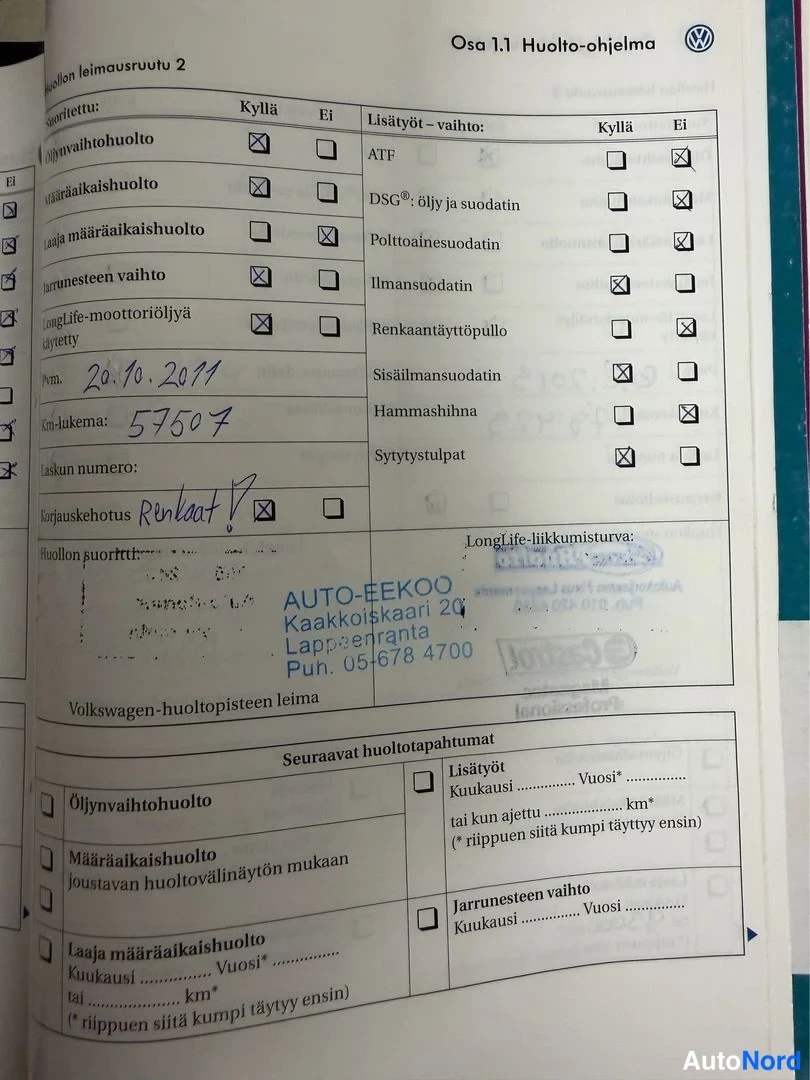 Osa 1.1 Huolto-ohjelma
Huollon leimausruutu 2
Suoritettu:
Kyllä
Ei
Öljynvaihtohuolto
Määräaikaishuolto
Laaja määräaikaishuolto
Jarrunesteen vaihto
LongLife-moottoriöljyä
käytetty
Pvm. 20.10.2011
Km-lukema: 57507
Laskun numero:
Korjauskehotus Renkaat!
Lisätyöt – vaihto:
Kyllä
Ei
ATF
DSG®: öljy ja suodatin
Polttoainesuodatin
Ilmansuodatin
Renkaantäyttöpullo
Sisäilmansuodatin
Hammashihna
Sytytystulpat
Huollon suoritti:
AUTO-EEKOO
Kaakkoiskaari 20
Lappeenranta
Puh. 05-678 4700
Volkswagen-huoltopisteen leima
LongLife-liikkumisturva:
Seuraavat huoltotapahtumat
Öljynvaihtohuolto
Määräaikaishuolto
joustavan huoltovälinäytön mukaan
Laaja määräaikaishuolto
Kuukausi ............... Vuosi* ...............
tai .................... km*
(* riippuen siitä kumpi täytyy ensin)
Lisätyöt
Kuukausi ............... Vuosi* ...............
tai kun ajettu .................... km*
(* riippuen siitä kumpi täyttyy ensin)
Jarrunesteen vaihto
Kuukausi ............... Vuosi ...............
Ei
AutoNord